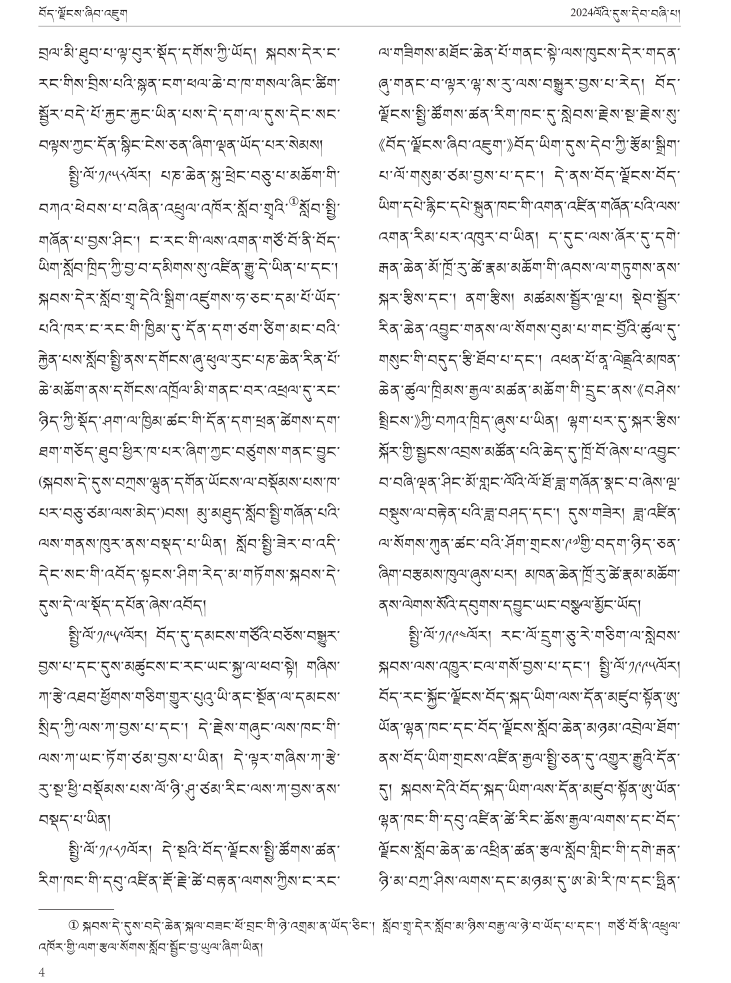 བོད་ལྗོངས་ཞིབ་འཇུག
2024ལོའི་དུས་དེབ་བཞི་པ།
བྲལ་མི་ཐུབ་པ་ལྟ་བུར་སྡོད་དགོས་ཀྱི་ཡོད། སྐབས་དེར་ང་
རང་གིས་བྲིས་པའི་སྙན་ངག་ཕལ་ཆེ་བ་ཁ་གསལ་ཞིང་ཚིག་
སྦྱོར་བདེ་པོ་རྐྱང་རྐྱང་ཡིན་པས་དེ་དག་ལ་དུས་དེང་སང་
བལྟས་ཀྱང་དོན་སྙིང་ངེས་ཅན་ཞིག་ལྡན་ཡོད་པར་སེམས།
སྤྱི་ལོ་༡༩༥༨ལོར། པཎ་ཆེན་སྐུ་ཕྲེང་བཅུ་པ་མཆོག་གི་
བཀའ་ཕེབས་པ་བཞིན་འཕྲུལ་འཁོར་སློབ་གྲྭའི་①སློབ་སྤྱི་
གཞོན་པ་བྱས་ཤིང་། ང་རང་གི་ལས་འགན་གཙོ་བོ་ནི་བོད་
ཡིག་སློབ་ཁྲིད་ཀྱི་བྱ་བ་དམིགས་སུ་འཛིན་རྒྱུ་དེ་ཡིན་པ་དང་།
སྐབས་དེར་སློབ་གྲྭ་དེའི་སྒྲིག་འཛུགས་ཧ་ཅང་དམ་པོ་ཡོད་
པའི་ཁར་ང་རང་གི་ཁྱིམ་དུ་དོན་དག་ཙག་ཙིག་མང་བའི་
རྐྱེན་པས་སློབ་སྤྱི་ནས་དགོངས་ཞུ་ཕུལ་རུང་པཎ་ཆེན་རིན་པོ་
ཆེ་མཆོག་ནས་དགོངས་འཁྲོལ་མི་གནང་བར་འཕྲལ་དུ་རང་
ཉིད་ཀྱི་སྡོད་ཤག་ལ་ཁྱིམ་ཚང་གི་དོན་དག་ཕྲན་ཚེགས་དག་
ཐག་གཅོད་ཐུབ་ཕྱིར་ཁ་པར་ཞིག་ཀྱང་བཙུགས་གནང་བྱུང་
(སྐབས་དེ་དུས་བཀྲས་ལྷུན་དགོན་ཡོངས་ལ་བསྡོམས་པས་ཁ་
པར་བཅུ་ཙམ་ལས་མེད་)བས། མུ་མཐུད་སློབ་སྤྱི་གཞོན་པའི་
ལས་གནས་ཁུར་ནས་བསྡད་པ་ཡིན། སློབ་སྤྱི་ཟེར་བ་འདི་
དེང་སང་གི་འབོད་སྟངས་ཤིག་རེད་མ་གཏོགས་སྐབས་དེ་
དུས་དེ་ལ་སྡོད་དཔོན་ཞེས་འབོད།
སྤྱི་ལོ་༡༩༥༩ལོར། བོད་དུ་དམངས་གཙོའི་བཅོས་བསྒྱུར་
བྱས་པ་དང་དུས་མཚུངས་ང་རང་ཡང་སྐྱ་ལ་ཕབ་སྟེ། གཞིས་
ཀ་རྩེ་འཐབ་ཕྱོགས་གཅིག་གྱུར་པུའུ་ཡི་ནང་སྔོན་ལ་དམངས་
སྲིད་ཀྱི་ལས་ཀ་བྱས་པ་དང་། དེ་རྗེས་གཞུང་ལས་ཁང་གི་
ལས་ཀ་ཡང་ཏོག་ཙམ་བྱས་པ་ཡིན། དེ་ལྟར་གཞིས་ཀ་རྩེ་
རུ་སྔ་ཕྱི་བསྡོམས་པས་ལོ་ཉི་ཤུ་ཙམ་རིང་ལས་ཀ་བྱས་ནས་
བསྡད་པ་ཡིན།
སྤྱི་ལོ་༡༩༨༡ལོར། དེ་སྔའི་བོད་ལྗོངས་སྤྱི་ཚོགས་ཚན་
རིག་ཁང་གི་དབུ་འཛིན་རྡོ་རྗེ་ཚེ་བརྟན་ལགས་ཀྱིས་ང་རང་
ལ་གཟིགས་མཐོང་ཆེན་པོ་གནང་སྟེ་ལས་ཁུངས་དེར་གདན་
ཞུ་གནང་བ་ལྟར་ལྷ་ས་རུ་ལས་བསྒྱུར་བྱས་པ་རེད། བོད་
ལྗོངས་སྤྱི་ཚོགས་ཚན་རིག་ཁང་དུ་སླེབས་རྗེས་སྔ་རྗེས་སུ་
《བོད་ལྗོངས་ཞིབ་འཇུག་》བོད་ཡིག་དུས་དེབ་ཀྱི་རྩོམ་སྒྲིག་
པ་ལོ་གསུམ་ཙམ་བྱས་པ་དང་། དེ་ནས་བོད་ལྗོངས་བོད་
ཡིག་དཔེ་རྙིང་དཔེ་སྐྲུན་ཁང་གི་འགན་འཛིན་གཞོན་པའི་ལས་
འགན་རིམ་པར་འཁུར་བ་ཡིན། ད་དུང་ལས་ཞོར་དུ་དགེ་
རྒན་ཆེན་མོ་ཁྲོ་རུ་ཚེ་རྣམ་མཆོག་གི་ཞབས་ལ་གཏུགས་ནས་
སྐར་རྩིས་དང་། ནག་རྩིས། མཚམས་སྦྱོར་ལྔ་པ། སྡེབ་སྦྱོར་
རིན་ཆེན་འབྱུང་གནས་ལ་སོགས་བུམ་པ་གང་བྱོའི་ཚུལ་དུ་
གསུང་གི་བདུད་རྩི་ཐོབ་པ་དང་། འཕན་པོ་ནཱ་ལེནྡྲའི་མཁན་
ཆེན་ཚུལ་ཁྲིམས་རྒྱལ་མཚན་མཆོག་གི་དྲུང་ནས་《བཤེས་
སྤྲིངས་》ཀྱི་བཀའ་ཁྲིད་ཞུས་པ་ཡིན། ལྷག་པར་དུ་སྐར་རྩིས་
སྐོར་གྱི་སྦྱངས་འབྲས་མཚོན་པའི་ཆེད་དུ་ཁྲོ་བོ་ཞེས་པ་འབྱུང་
བ་བཞི་ལྡན་ཤིང་མོ་གླང་ལོའི་ལོ་ཐོ་ཟླ་གཞོན་སྣང་བ་ཞེས་ལྔ་
བསྡུས་ལ་བརྟེན་པའི་ཟླ་བཤད་དང་། དུས་གཟེར། ཟླ་འཛིན་
ལ་སོགས་ཀུན་ཚང་བའི་ཤོག་གྲངས་༩༧གྱི་བདག་ཉིད་ཅན་
ཞིག་བརྩམས་ཁུལ་ཞུས་པར། མཁན་ཆེན་ཁྲོ་རུ་ཚེ་རྣམ་མཆོག་
ནས་ལེགས་སོའི་དབུགས་དབྱུང་ཡང་བསྩལ་མྱོང་ཡོད།
སྤྱི་ལོ་༡༩༩༤ལོར། རང་ལོ་དྲུག་ཅུ་རེ་གཅིག་ལ་སླེབས་
སྐབས་ལས་འཁུར་ངལ་གསོ་བྱས་པ་དང་། སྤྱི་ལོ་༡༩༩༥ལོར།
བོད་རང་སྐྱོང་ལྗོངས་བོད་སྐད་ཡིག་ལས་དོན་མཛུབ་སྟོན་ཨུ་
ཡོན་ལྷན་ཁང་དང་བོད་ལྗོངས་སློབ་ཆེན་མཉམ་འབྲེལ་ཐོག་
ནས་བོད་ཡིག་གྲངས་འཛིན་རྒྱལ་སྤྱི་ཅན་དུ་འགྱུར་རྒྱུའི་དོན་
དུ། སྐབས་དེའི་བོད་སྐད་ཡིག་ལས་དོན་མཛུབ་སྟོན་ཨུ་ཡོན་
ལྷན་ཁང་གི་དབུ་འཛིན་ཚེ་རིང་ཆོས་རྒྱལ་ལགས་དང་བོད་
ལྗོངས་སློབ་ཆེན་ཆ་འཕྲིན་ཚན་རྩལ་སློབ་གླིང་གི་དགེ་རྒན་
ཉི་མ་བཀྲ་ཤིས་ལགས་དང་མཉམ་དུ་ཨ་མེ་རི་ཁ་དང་ཧྥིན་
① སྐབས་དེ་དུས་བདེ་ཆེན་སྐལ་བཟང་ཕོ་བྲང་གི་ཉེ་འགྲམ་ན་ཡོད་ཅིང་། སློབ་གྲྭ་དེར་སློབ་མ་ཉིས་བརྒྱ་ལ་ཉེ་བ་ཡོད་པ་དང་། གཙོ་བོ་ནི་འཕྲུལ་
འཁོར་གྱི་ལག་རྩལ་སོགས་སློབ་སྦྱོང་བྱ་ཡུལ་ཞིག་ཡིན།
4